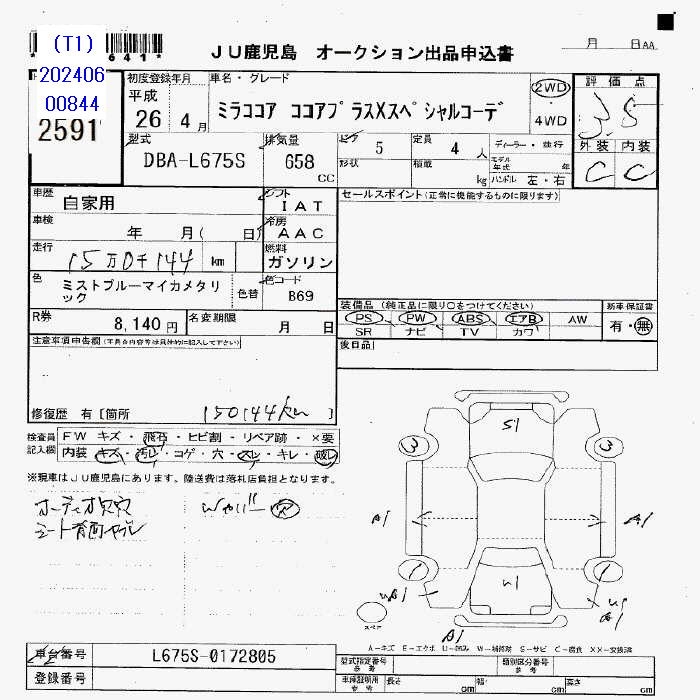 (T1)
202406
00844
641*
2591
JU鹿児島 オークション出品申込書
月 日AA
初度登録年月
平成
26 4月
車名・グレード
ミラココア ココアプラスXスペシャルコーデ
2WD
4WD
評価点
3.5
外装 内装
C C
型式
DBA-L675S
排気量
658
cc
ドア
5
形状
定員
4 人
積載
kg
ディーラー・並行
モデル年式 年
ハンドル 左・右
車歴
自家用
シフト
IAT
車検
年 月(日)
冷房
AAC
走行
15万0千144 km
燃料
ガソリン
色
ミストブルーマイカメタリック
色替
色コード
B69
R券
8,140円
名変期限
月 日
セールスポイント(正常に機能するものに限ります)
装備品(純正品に限り○をつけてください)
PS PW ABS エアB AW
SR ナビ TV カワ
新車保証書
有・無
後日品
注意事項申告欄(不具合内容等は具体的に記入して下さい)
修復歴 有[箇所 150144km ]
検査員
記入欄
FW キズ・飛石・ヒビ割・リペア跡・×要
内装 キズ・汚レ・コゲ・穴・スレ・キレ・破レ
※現車はJU鹿児島にあります。陸送費は落札店負担となります。
オーディオ欠穴
S1
3 3
A1 A1
1 1
W1
A1
A1
スペア
A-キズ E-エクボ U-凹み W-補修跡 S-サビ C-腐食 XX-交換済
車台番号
L675S-0172805
登録番号
型式指定番号
参考
類別区分番号
参考
車庫証明用
参考
長さ cm
幅 cm
高さ cm